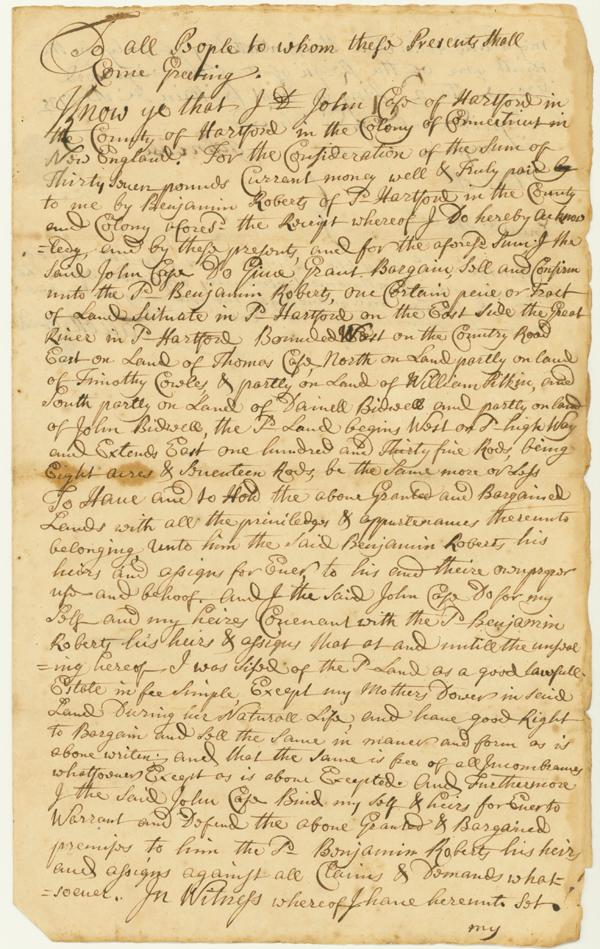 To all People to whom these Presents Shall
Come Greeting.
Know ye that I John Case of Hartford in
the County of Hartford in the Colony of Connecticut in
New England. For the Consideration of the Sum of
Thirty Seven pounds Current money well & Truly paid
to me by Benjamin Roberts of Sd Hartford in the County
and Colony aforesd the Receipt whereof I Do hereby acknow
=ledg, and by these presents, and for the aforesd Sum I the
Said John Case Do Give Grant Bargain Sell and Confirm
unto the Sd Benjamin Roberts, one Certain peice or Tract
of Land Situate in Sd Hartford on the East Side the Great
River in Sd Hartford Bounded West on the Country Road
East on Land of Thomas Case, North on Land partly on land
of Timothy Cowles & partly on Land of William Pitkin, and
South partly on Land of Daniell Bidwell and partly on land
of John Bidwell, the Sd Land begins West on Sd high Way
and Extends East one hundred and Thirty five Rods, being
Eight acres & Seventeen Rods, be the Same more or Less
To Have and to Hold the above Granted and Bargained
Lands with all the priviledges & appurtenances thereunto
belonging, Unto him the Said Benjamin Roberts his
heirs and assigns for Ever, to his and theire own proper
use and behoof, and I the Said John Case Do for my
Self and my heires Covenant with the Sd Benjamin
Roberts his heirs & assigns that at and untill the unseal
=ing hereof I was Sised of the Sd Land as a good lawfull
Estate in fee Simple, Except my Mothers Dower in Said
Land During her Naturall Life, and have good Right
to Bargain and Sell the Same in maner and form as is
above writen; and that the Same is free of all Incombrances
whatsoever Except as is above Excepted. And Furthermore
I the Said John Case Bind my Self & heirs for Ever to
Warrant and Defend the above Granted & Bargained
premises to him the Sd Benjamin Roberts his heirs
and assigns against all Claims & Demands what=
=soever. In Witness whereof I have hereunto Set
my